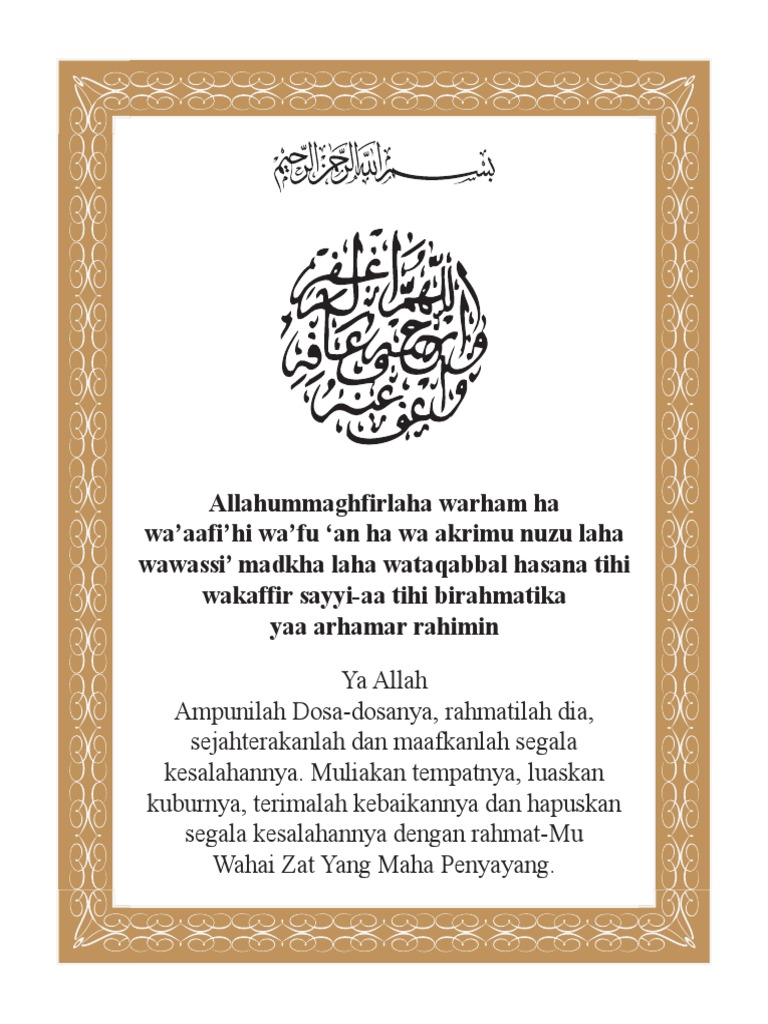 بسم الله الرحمن الرحيم
اللهم اغفر
له
وارحمه وعافه
واعف عنه
Allahummaghfirlaha warham ha
wa’aafi’hi wa’fu ‘an ha wa akrimu nuzu laha
wawassi’ madkha laha wataqabbal hasana tihi
wakaffir sayyi-aa tihi birahmatika
yaa arhamar rahimin
Ya Allah
Ampunilah Dosa-dosanya, rahmatilah dia,
sejahterakanlah dan maafkanlah segala
kesalahannya. Muliakan tempatnya, luaskan
kuburnya, terimalah kebaikannya dan hapuskan
segala kesalahannya dengan rahmat-Mu
Wahai Zat Yang Maha Penyayang.